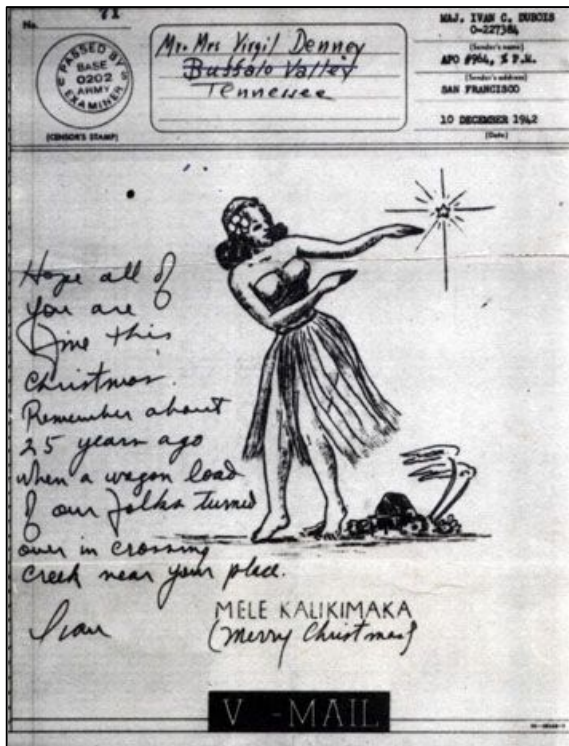 No.
71
PASSED BY
BASE
0202
ARMY
EXAMINER
(CENSOR'S STAMP)
Mr. Mrs Virgil Denney
Buffalo Valley
Tennessee
MAJ. IVAN C. DUBOIS
O-227384
(Sender's name)
APO #964, % P.M.
(Sender's address)
SAN FRANCISCO
10 DECEMBER 1942
(Date)
Hope all of
you are
fine this
Christmas.
Remember about
25 years ago
when a wagon load
of our folks turned
over in crossing
creek near your place.
Ivan
MELE KALIKIMAKA
(Merry Christmas)
V - MAIL